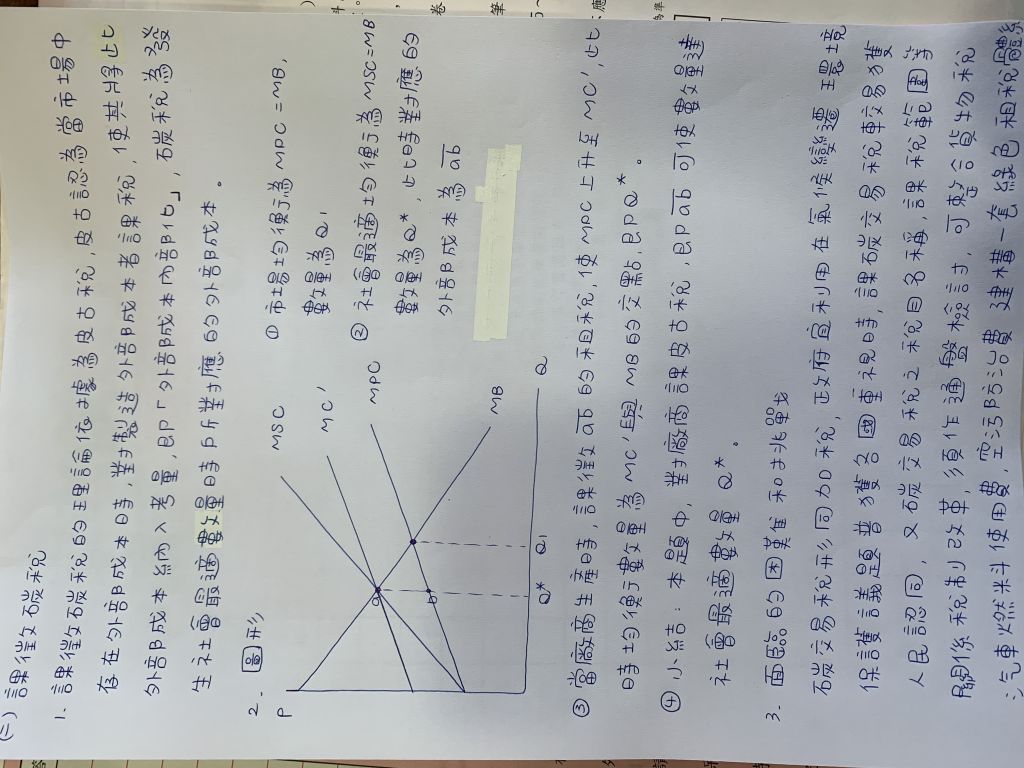 (二) 課徵碳稅
1. 課徵碳稅的理論依據為皮古稅，皮古認為當市場中
存在外部成本時，對製造外部成本者課稅，使其將此
外部成本納入考量，即「外部成本內部化」，碳稅為發
生社會最適數量時所對應的外部成本。
2. 圖形
P
MSC
MC'
MPC
MB
a
b
Q*
Q1
Q
① 市場均衡為MPC=MB，
數量為Q1
② 社會最適均衡為MSC=MB
數量為Q*，此時對應的
外部成本為ab
③ 當廠商生產時，課徵ab的租稅，使MPC上升至MC'，此
時均衡數量為MC'與MB的交點，即Q*。
④ 小結：本題中，對廠商課皮古稅，即ab可使數量達
社會最適數量Q*。
3. 面臨的困難和挑戰
碳交易稅形同加稅，政府宜利用在氣候變遷環境
保護議題普獲各國重視時，課碳交易稅較易獲
人民認同，又碳交易稅之稅目名稱，課稅範圍等
關係稅制改革，須作通盤檢討，可整合貨物稅
汽車燃料使用費，空污防治費建構一套綠色租稅體系